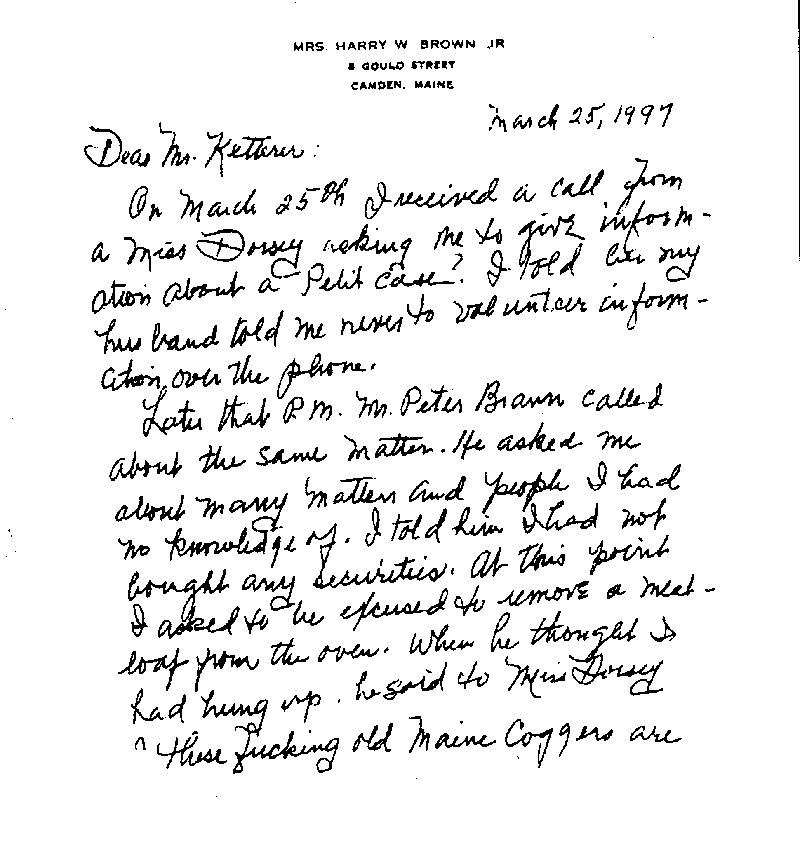 MRS. HARRY W BROWN JR
8 GOULD STREET
CAMDEN, MAINE
March 25, 1997
Dear Mr. Ketterer:
On March 25th I received a call from
a Miss Dorsey asking me to give inform-
ation about a Petit case? I told her my
husband told me never to volunteer inform-
ation over the phone.
Later that P.M. Mr. Peter Braun called
about the same matter. He asked me
about many matters and people I had
no knowledge of. I told him I had not
bought any securities. At this point
I asked to be excused to remove a meat-
loaf from the oven. When he thought I
had hung up. he said to Miss Dorsey
"these fucking old Maine Coggers are